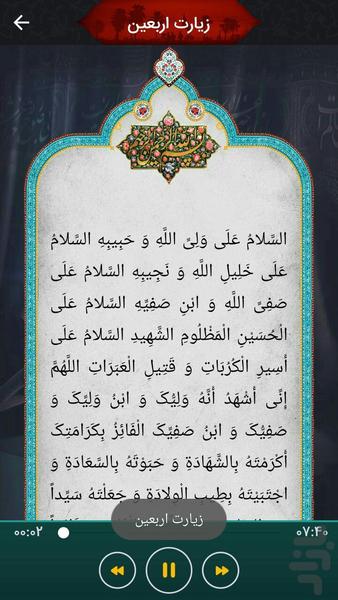 زیارت اربعین
السَّلامُ عَلَی وَلِیِّ اللَّهِ وَ حَبِیبِهِ السَّلامُ
عَلَی خَلِیلِ اللَّهِ وَ نَجِیبِهِ السَّلامُ عَلَی
صَفِیِّ اللَّهِ وَ ابْنِ صَفِیِّهِ السَّلامُ عَلَی
الْحُسَیْنِ الْمَظْلُومِ الشَّهِیدِ السَّلامُ عَلَی
أسِیرِ الْکُرُبَاتِ وَ قَتِیلِ الْعَبَرَاتِ اللَّهُمَّ
إنِّی أشْهَدُ أنَّهُ وَلِیُّکَ وَ ابْنُ وَلِیِّکَ وَ
صَفِیُّکَ وَ ابْنُ صَفِیِّکَ الْفَائِزُ بِکَرَامَتِکَ
أکْرَمْتَهُ بِالشَّهَادَةِ وَ حَبَوْتَهُ بِالسَّعَادَةِ وَ
اجْتَبَیْتَهُ بِطِیبِ الْوِلادَةِ وَ جَعَلْتَهُ سَیِّداً
زیارت اربعین
۰۰:۰۲
۰۷:۴۰